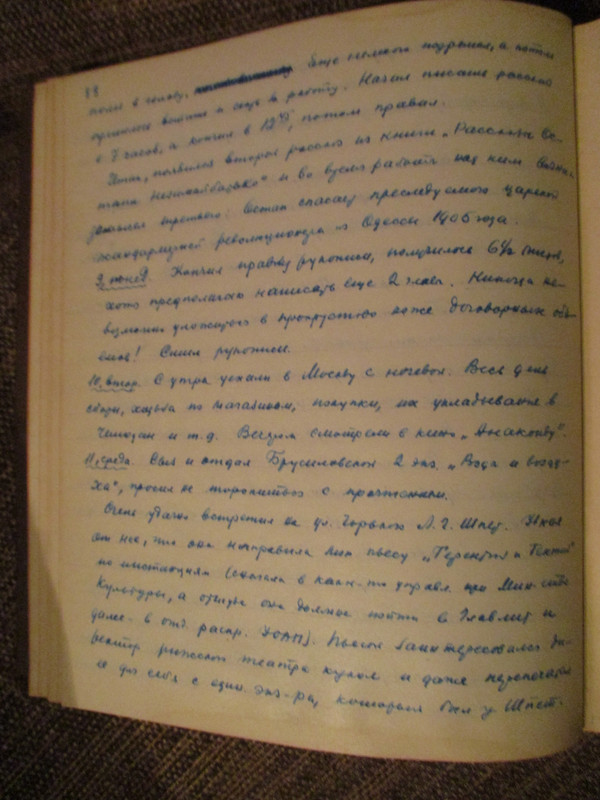 88
полез в голову. Еще немного подремал, а потом
пришлось встать и сесть за работу. Начал писание рассказа
в 7 часов, а кончил в 12 ½, потом правил.
Итак, появился второй рассказ из книги „Рассказы Ос-
тапа Незымайбатько" и во время работы над ним
: Остап спасает преследуемого царской
жандармерией революционера из Одессы 1905 года.
9, понед. Кончил правку рукописи, получилось 6 ½ листов,
хотя предполагаю написать еще 2 главы. Никогда не-
возможно уложиться в прокрустово ложе договорных объ-
емов! Сшил рукописи.
10, втор. С утра уехали в Москву с ночевой. Весь день
сборы, ходьба по магазинам, покупки, их укладывание в
чемодан и т.д. Вечером смотрели в кино „Анаконду".
11, среда. Был и отдал Брусиловской 2 экз. „Вода и возду-
ха", просил не торопиться с прочтением.
Очень удачно встретил на ул. Горького Л. Г. Шпет. Узнал
от нее, что она направила мою пьесу „Терентий и Тентий"
по инстанциям (сначала в какое-то управл. при Мин-стве
Культуры, а оттуда она должна пойти в Главлит и
далее - в отд. распр. УОАП). Пьесой заинтересовался ди-
ректор рижского театра кукол и даже перепечатал
ее для себя с один. экз-ра, который был у Шпет.